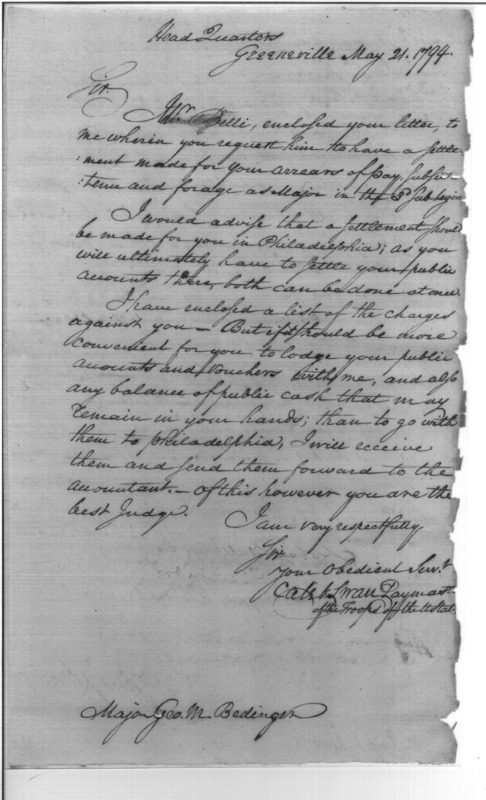 Head Quarters
Greeneville May 21. 1794.
Sir.
Mr Belli, enclosed your letter, to
me wherein you request him to have a settle
ment made for your arrears of pay, subsis-
tence and forage as Major in the 3d Sub legion
I would advise that a settlement should
be made for you in Philadelphia; as you
will ultimately have to settle your public
accounts there, both can be done at once.
I have enclosed a list of the charges
against you — But if it should be more
convenient for you to lodge your public
accounts and vouchers with me, and also
any balance of public cash that may
remain in your hands; than to go with
them to Philadelphia, I will receive
them and send them forward to the
accountant. — Of this however you are the
best Judge.
I am very respectfully
Sir
your Obedient Servt
Caleb Swan Paymast
of the Troops of the U Stat
Major Geo. M. Bedinger